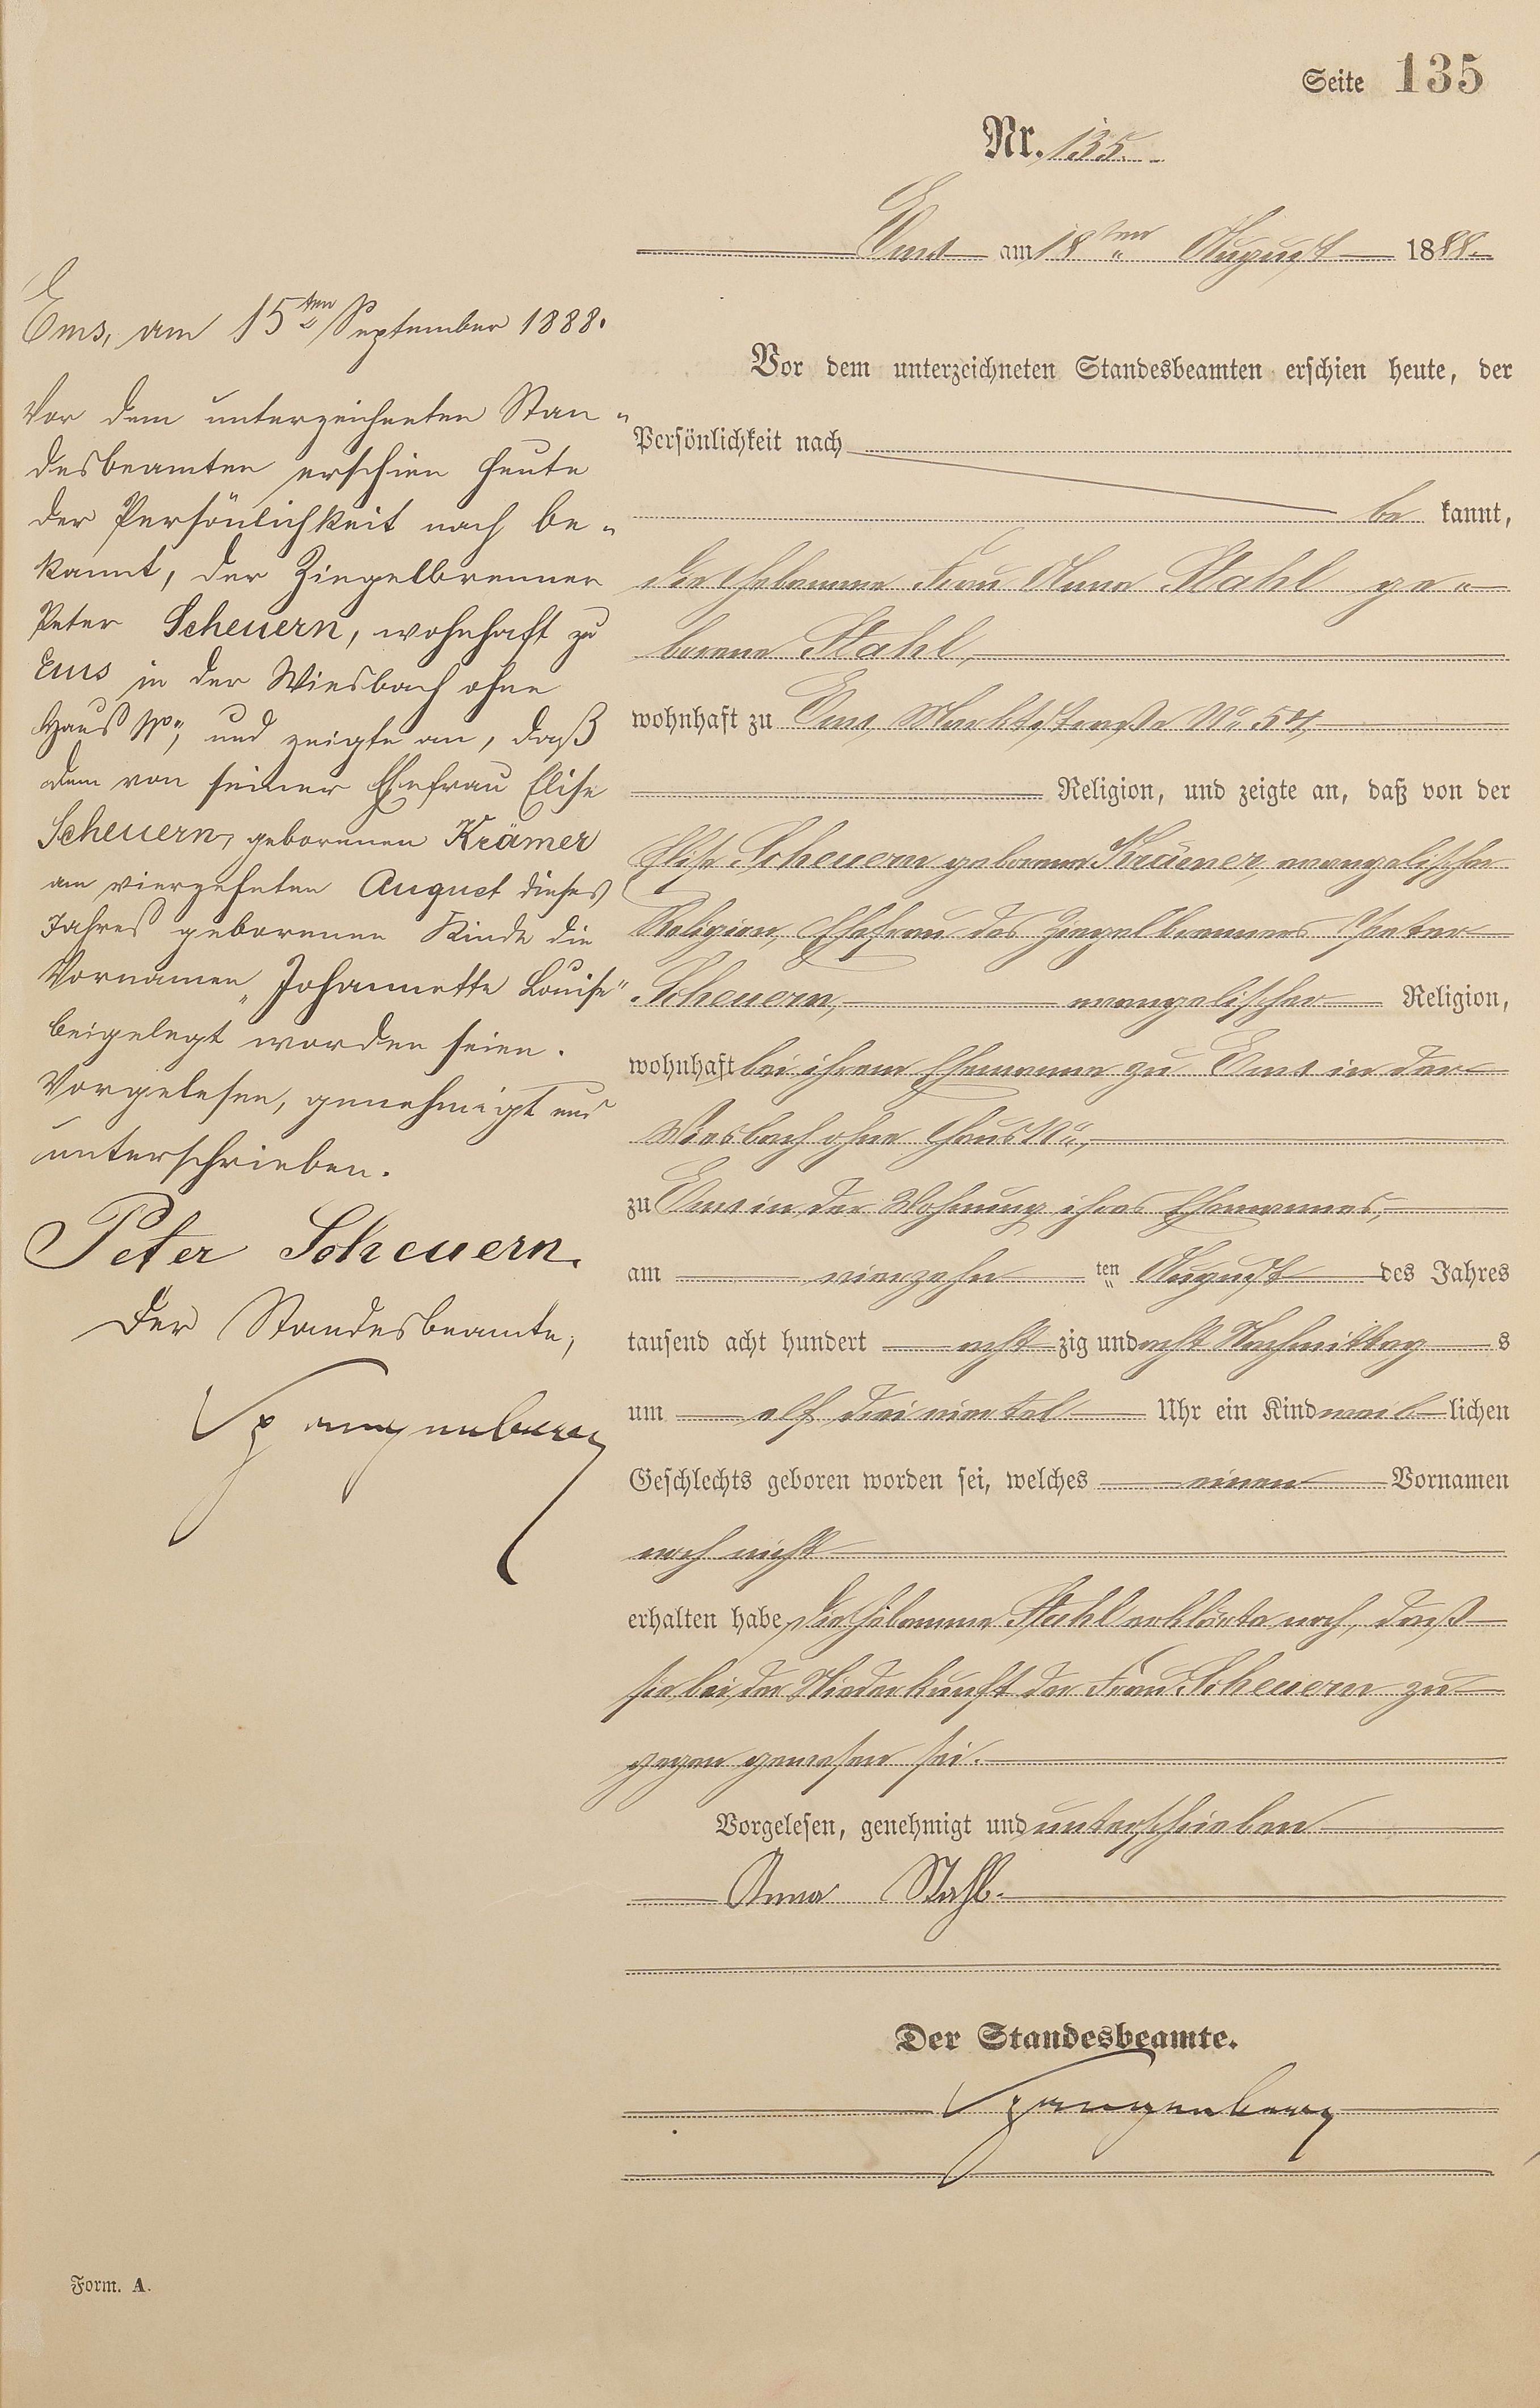 Seite 135
Nr. 135.
Ems am 18ten August 1888.
Vor dem unterzeichneten Standesbeamten erschien heute, der
Persönlichkeit nach
be kannt,
die Hebamme Frau Anna Stahl ge-
borene Stahl,
wohnhaft zu Ems, Marktstraße No. 54,
Religion, und zeigte an, daß von der
Elise Scheuern geborene Krämer, evangelischer
Religion, Ehefrau des Ziegelbrenners Peter
Scheuern, evangelischer Religion,
wohnhaft bei ihrem Ehemanne zu Ems in der
Wiesbach ohne Haus No.,
zu Ems in der Wohnung ihres Ehemannes,
am vierzehn ten August des Jahres
tausend acht hundert acht zig und acht Nachmittag s
um elf drei viertel Uhr ein Kind weib lichen
Geschlechts geboren worden sei, welches einen Vornamen
noch nicht
erhalten habe, die Hebamme Stahl erklärte noch, daß
sie bei der Niederkunft der Frau Scheuern zu
gegen gewesen sei.
Vorgelesen, genehmigt und unterschrieben
Anna Stahl.
Der Standesbeamte.
Spangenberg
Ems, am 15ten September 1888.
Vor dem unterzeichneten Stan-
desbeamten erschien heute
der Persönlichkeit nach be-
kannt, der Ziegelbrenner
Peter Scheuern, wohnhaft zu
Ems in der Wiesbach ohne
Haus No., und zeigte an, daß
dem von seiner Ehefrau Elise
Scheuern, geborenen Krämer
am vierzehnten August dieses
Jahres geborenen Kinde die
Vornamen „Johannette Louise"
beigelegt worden seien.
Vorgelesen, genehmigt und
unterschrieben.
Peter Scheuern.
Der Standesbeamte,
Spangenberg
Form. A.